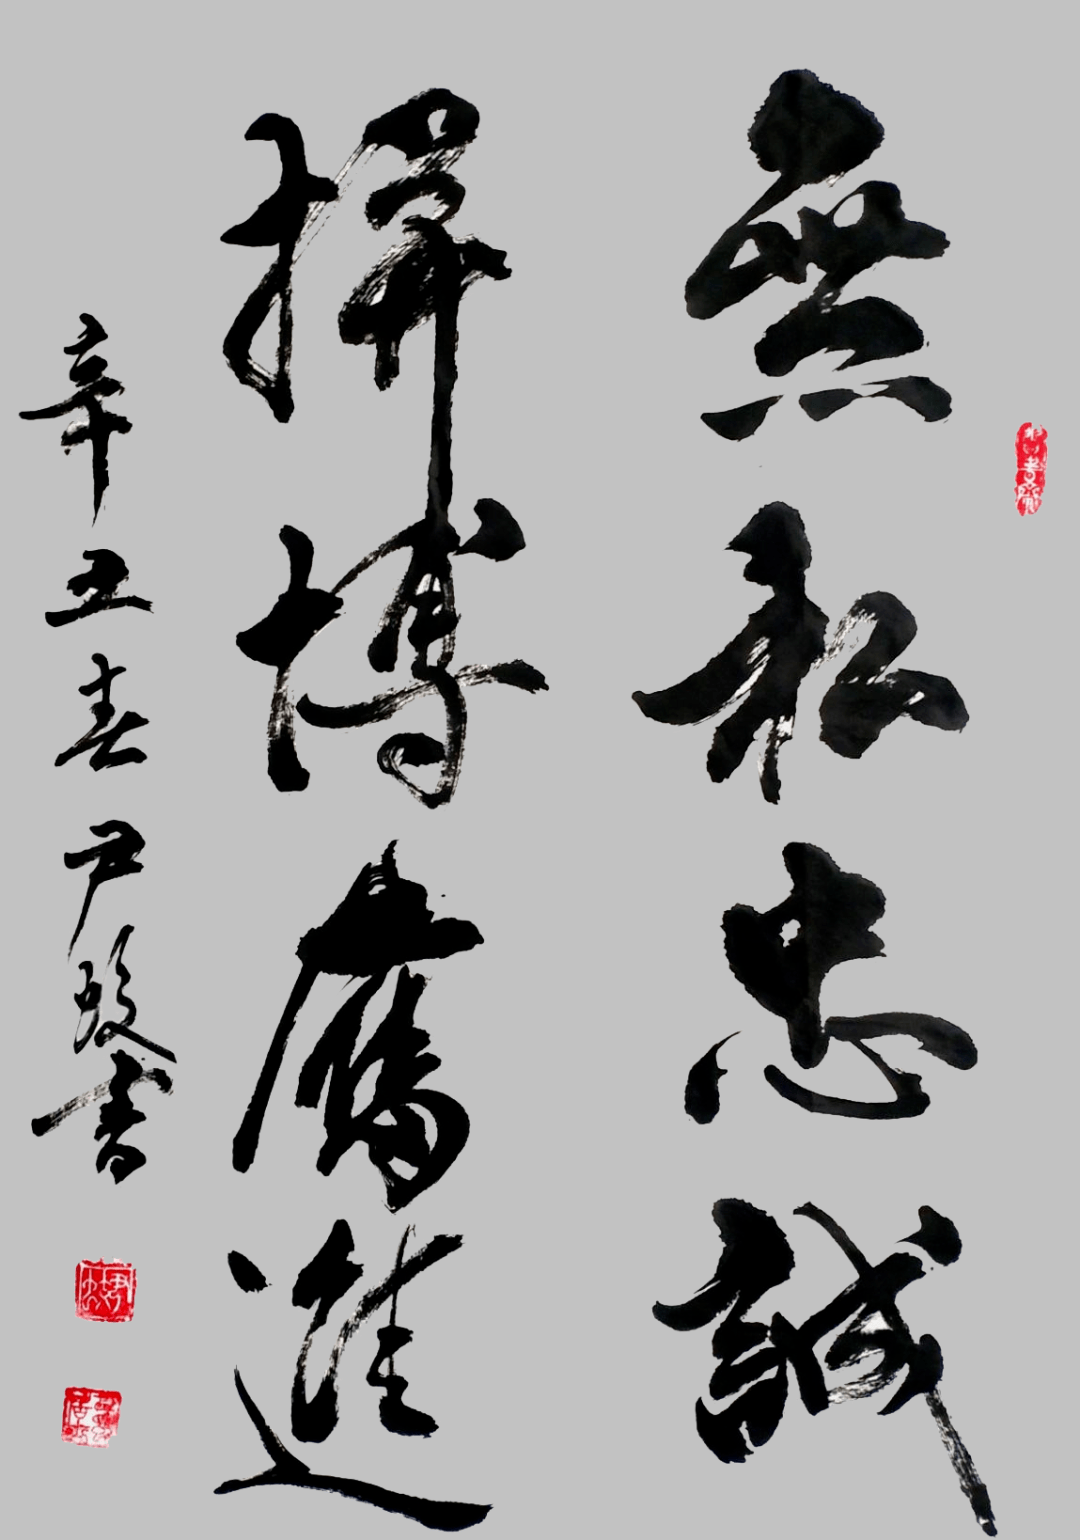 無私忠誠
拼搏奮進
辛丑春尹毅書